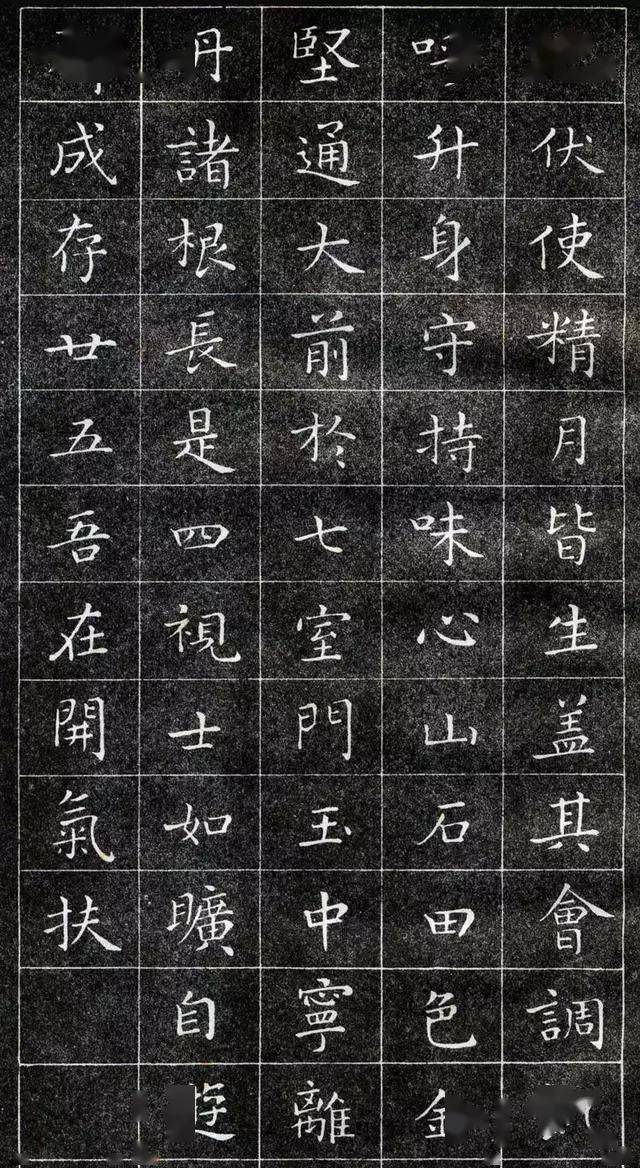 伏使精月皆生盖其會調
升身守持味心山石田色
堅通大前於七室門玉中寧離
丹諸根長是四視士如曠自
成存廿五吾在開氣扶